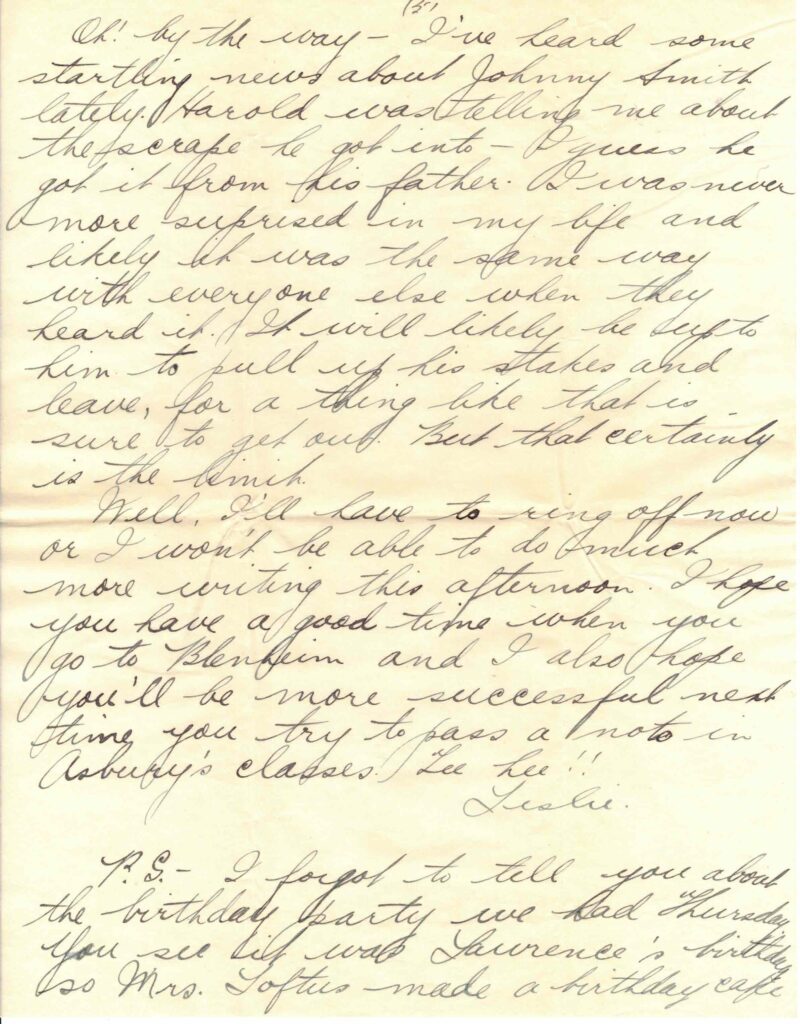 (5)
Oh! by the way - I've heard some
startling news about Johnny Smith
lately. Harold was telling me about
the scrape he got into - I guess he
got it from his father. I was never
more suprised in my life and
likely it was the same way
with everyone else when they
heard it. It will likely be up to
him to pull up his stakes and
leave, for a thing like that is
sure to get out. But that certainly
is the limit.
Well, I'll have to ring off now
or I won't be able to do much
more writing this afternoon. I hope
you have a good time when you
go to Blenheim and I also hope
you'll be more successful next
time you try to pass a note in
Asbury's classes. Tee hee!!
Leslie.
P.S. - I forgot to tell you about
the birthday party we had Thursday.
You see it was Laurence's birthday
so Mrs. Loftus made a birthday cake